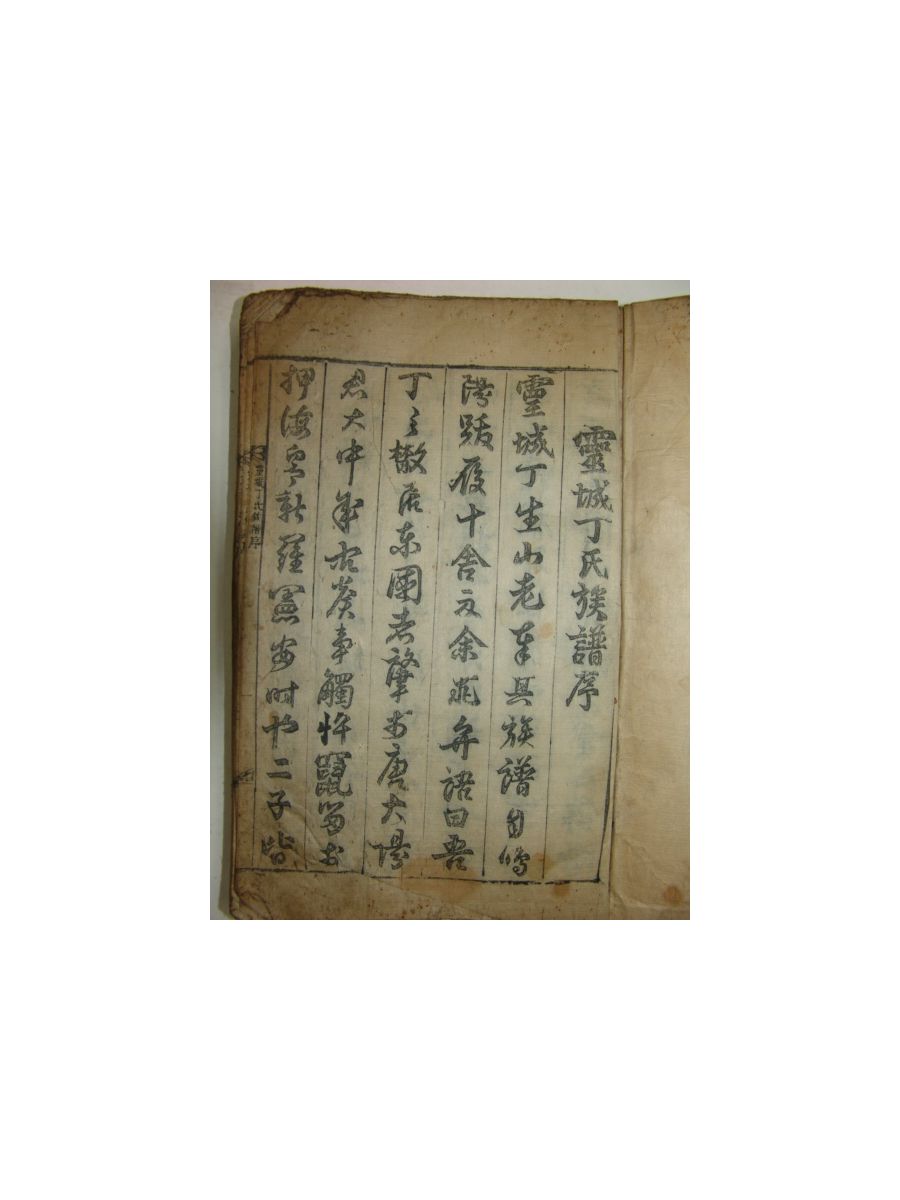 靈城丁氏族譜序
靈城丁生山老奉其族譜自
陽跋履十舍示余弁語曰吾
丁之散居東國者肇於唐大陽
君大中年事觸忤竄留於
押海新羅憲安時也二子皆
靈城丁氏族譜序